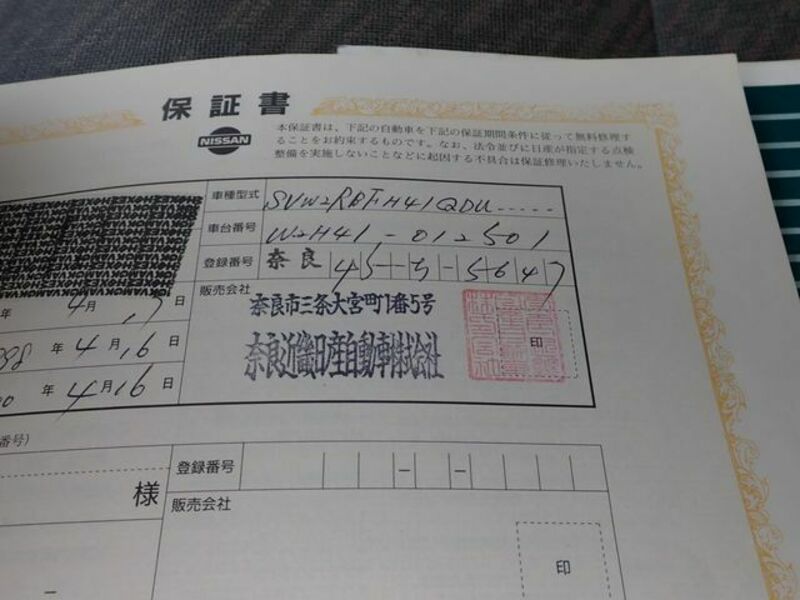 保証書
NISSAN
本保証書は、下記の自動車を下記の保証期間条件に従って無料修理す
ることをお約束するものです。なお、法令並びに日産が指定する点検
整備を実施しないことなどに起因する不具合は保証修理いたしません。
車種型式 SVW2RBFH41QDU.....
車台番号 W2H41-012501
登録番号 奈良 45 ち-5647
年 4月 17日
販売会社
奈良市三条大宮町1番5号
奈良近畿日産自動車株式会社
印
98年 4月16日
00年 4月16日
番号)
登録番号 - -
様
販売会社
印